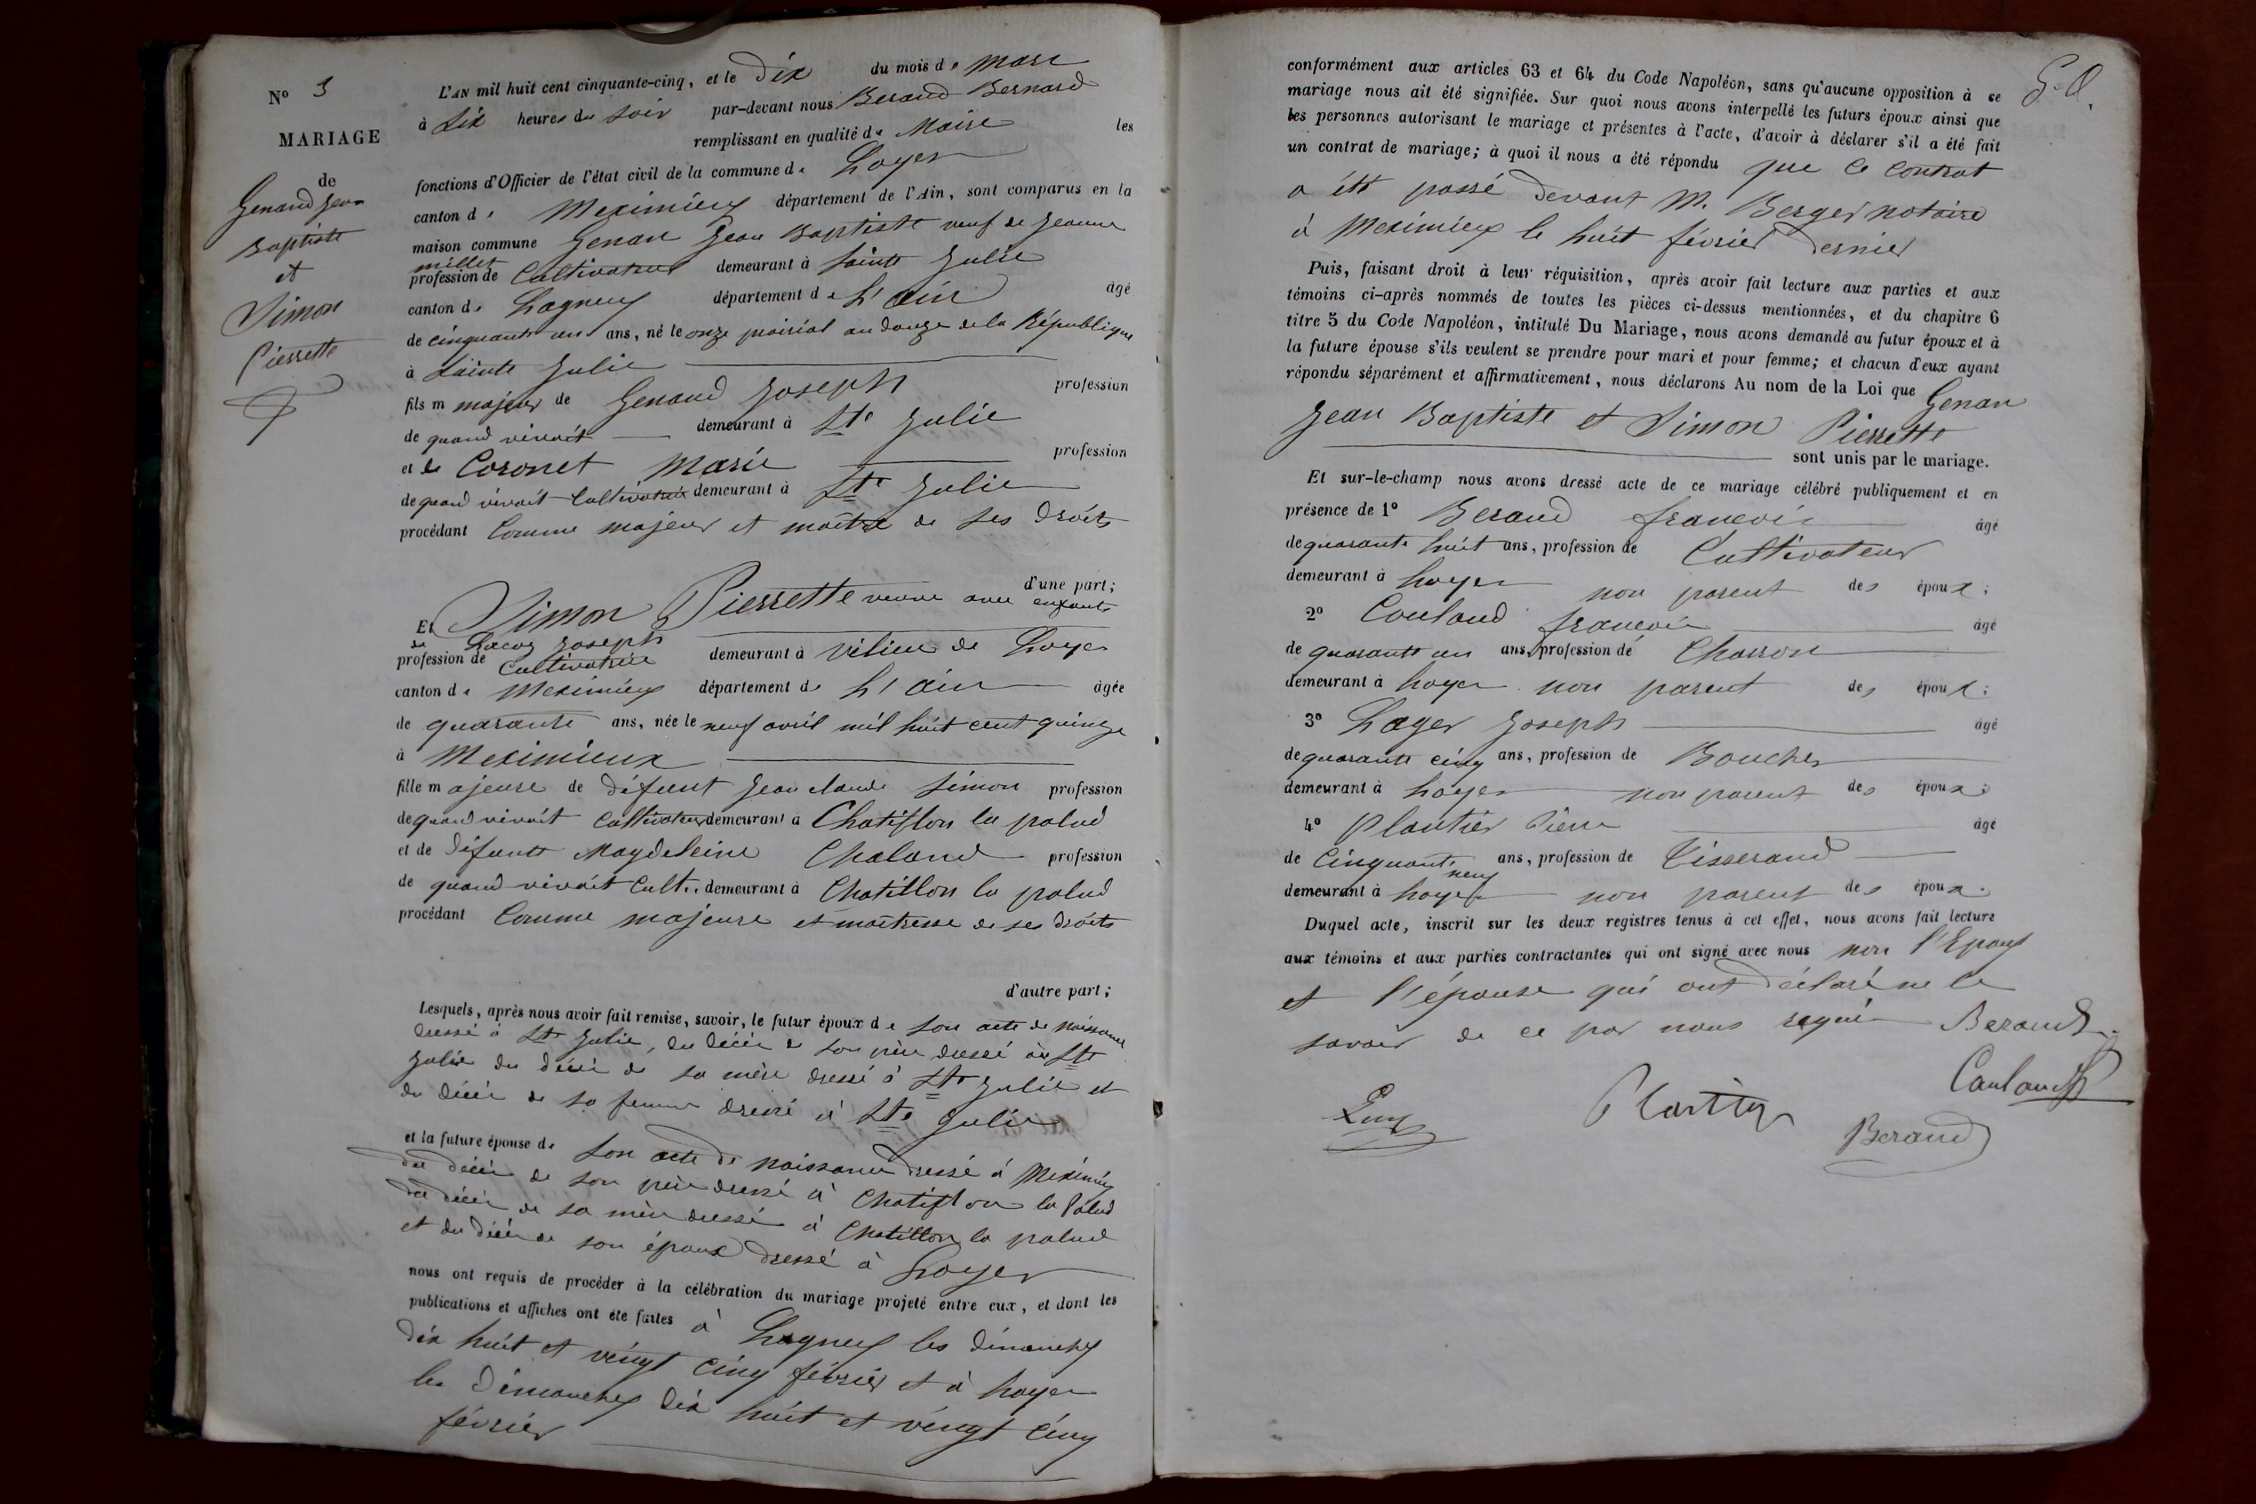 N° 3
MARIAGE
de
Genand Jean
Baptiste
et
Simon
Pierrette
L'AN mil huit cent cinquante-cinq, et le dix du mois de mars
à six heures du soir par-devant nous Beraud Bernard
remplissant en qualité de Maire les
fonctions d'Officier de l'état civil de la commune de Loyes
canton de Meximieux département de l'Ain, sont comparus en la
maison commune Genan Jean Baptiste veuf de Jeanne
millet
profession de Cultivateur demeurant à Sainte Julie
canton de Lagneux département de L'ain âgé
de cinquante un ans, né le onze prairial an douze de la République
à Sainte Julie
fils majeur de Genaud Joseph profession
de quand vivait demeurant à Ste Julie
et de Coronet Marie profession
de quand vivait Cultivatrice demeurant à Ste Julie
procédant Comme majeur et maître de ses droits
d'une part;
Et Simon Pierrette veuve avec enfants
de Lacoz Joseph
profession de Cultivatrice demeurant à vilieu de Loyes
canton de Meximieux département de L'ain âgée
de quarante ans, née le neuf avril mil huit cent quinze
à Meximieux
fille majeure de défunt Jean claude Simon profession
de quand vivait Cultivateur demeurant à Chatillon la palud
et de défunte Magdeleine Chaland profession
de quand vivait Cult.. demeurant à Chatillon la palud
procédant Comme majeure et maîtresse de ses droits
d'autre part;
Lesquels, après nous avoir fait remise, savoir, le futur époux de son acte de naissance
dressé à Ste Julie, du décès de son père dressé à Ste
Julie du décès de sa mère dressé à Ste Julie et
du décès de sa femme dressé à Ste Julie
et la future épouse de son acte de naissance dressé à Meximieux
du décès de son père dressé à Chatillon la Palud
du décès de sa mère dressé à Chatillon la palud
et du décès de son époux dressé à Loyes
nous ont requis de procéder à la célébration du mariage projeté entre eux, et dont les
publications et affiches ont été faites à Lagneux les dimanches
dix huit et vingt cinq février et à Loyes
les Dimanches dix huit et vingt cinq
février
conformément aux articles 63 et 64 du Code Napoléon, sans qu'aucune opposition à ce
mariage nous ait été signifiée. Sur quoi nous avons interpellé les futurs époux ainsi que
les personnes autorisant le mariage et présentes à l'acte, d'avoir à déclarer s'il a été fait
un contrat de mariage; à quoi il nous a été répondu que ce contrat
a été passé devant M. Berger notaire
à Meximieux le huit février dernier
Puis, faisant droit à leur réquisition, après avoir fait lecture aux parties et aux
témoins ci-après nommés de toutes les pièces ci-dessus mentionnées, et du chapitre 6
titre 5 du Code Napoléon, intitulé Du Mariage, nous avons demandé au futur époux et à
la future épouse s'ils veulent se prendre pour mari et pour femme; et chacun d'eux ayant
répondu séparément et affirmativement, nous déclarons Au nom de la Loi que Genan
Jean Baptiste et Simon Pierrette
sont unis par le mariage.
Et sur-le-champ nous avons dressé acte de ce mariage célébré publiquement et en
présence de 1° Beraud francois âgé
de quarante huit ans, profession de Cultivateur
demeurant à Loyes non parent des époux;
2° Couland francois âgé
de quarante un ans, profession de Charron
demeurant à Loyes non parent des époux;
3° Lager Joseph âgé
de quarante cinq ans, profession de Boucher
demeurant à Loyes non parent des époux;
4° Plantier Pierre âgé
de Cinquante neuf ans, profession de Tisserand
demeurant à Loyes non parent des époux.
Duquel acte, inscrit sur les deux registres tenus à cet effet, nous avons fait lecture
aux témoins et aux parties contractantes qui ont signé avec nous non l'Epoux
et l'épouse qui ont déclaré ne le
savoir de ce par nous requis Beraud
Caulaud
Beraud